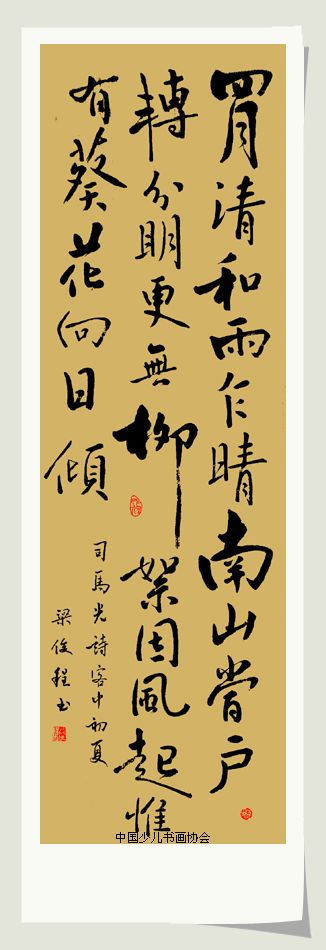 四月清和雨乍晴南山當戶
轉分明更無柳絮因風起惟
有葵花向日傾
司馬光詩客中初夏
梁俊程书
中国少儿书画协会